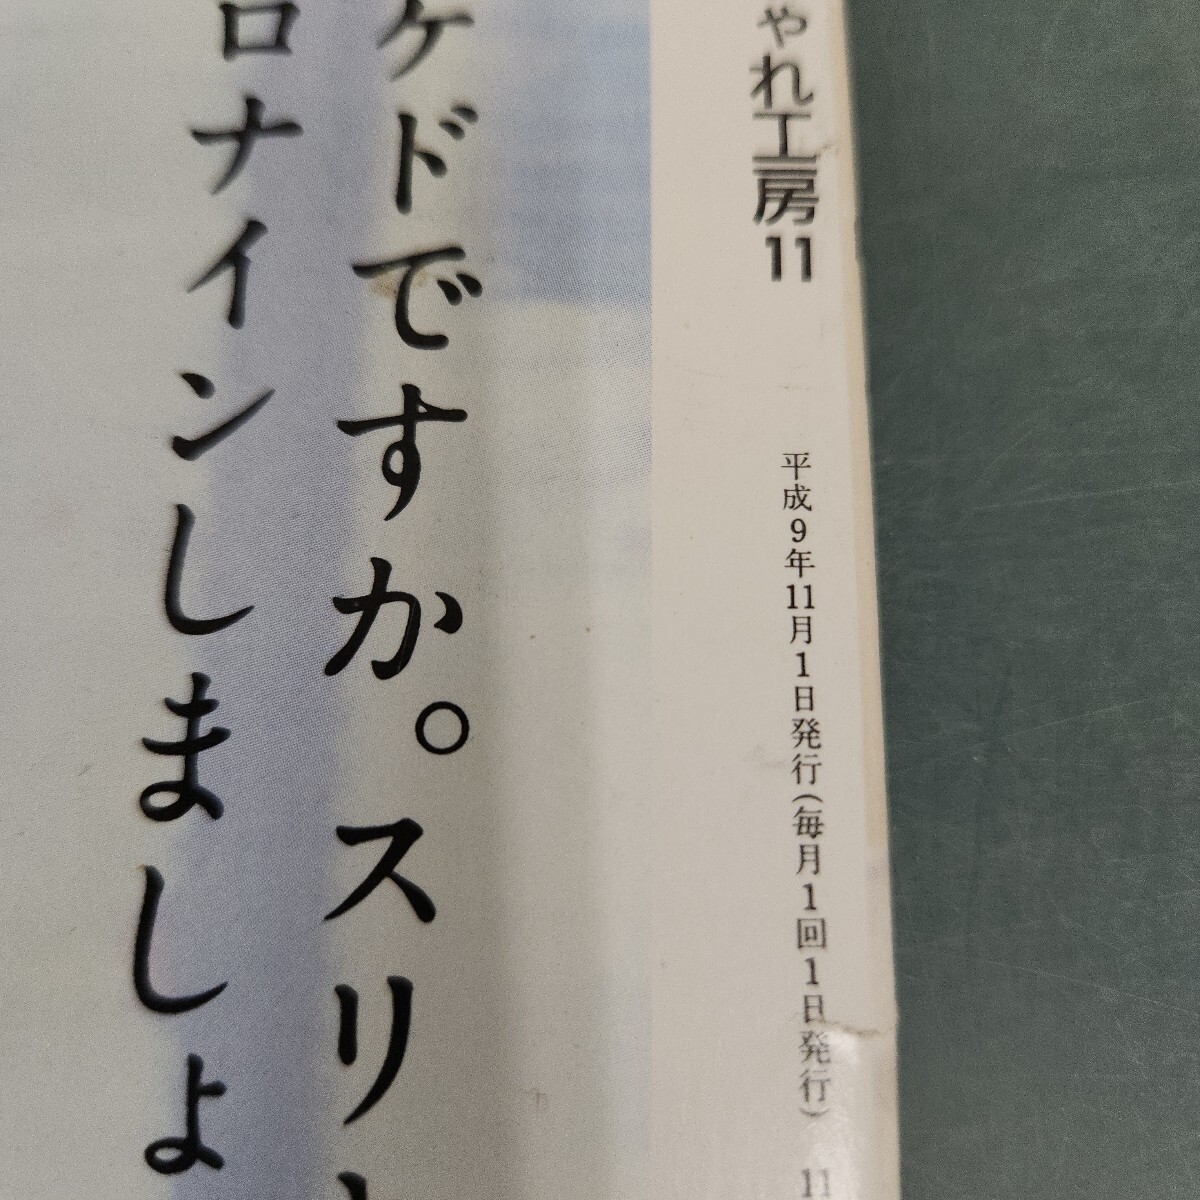 ゃれ工房11
平成9年11月1日発行(毎月1回1日発行) 11
ケドですか。スリ
ロナインしましょ